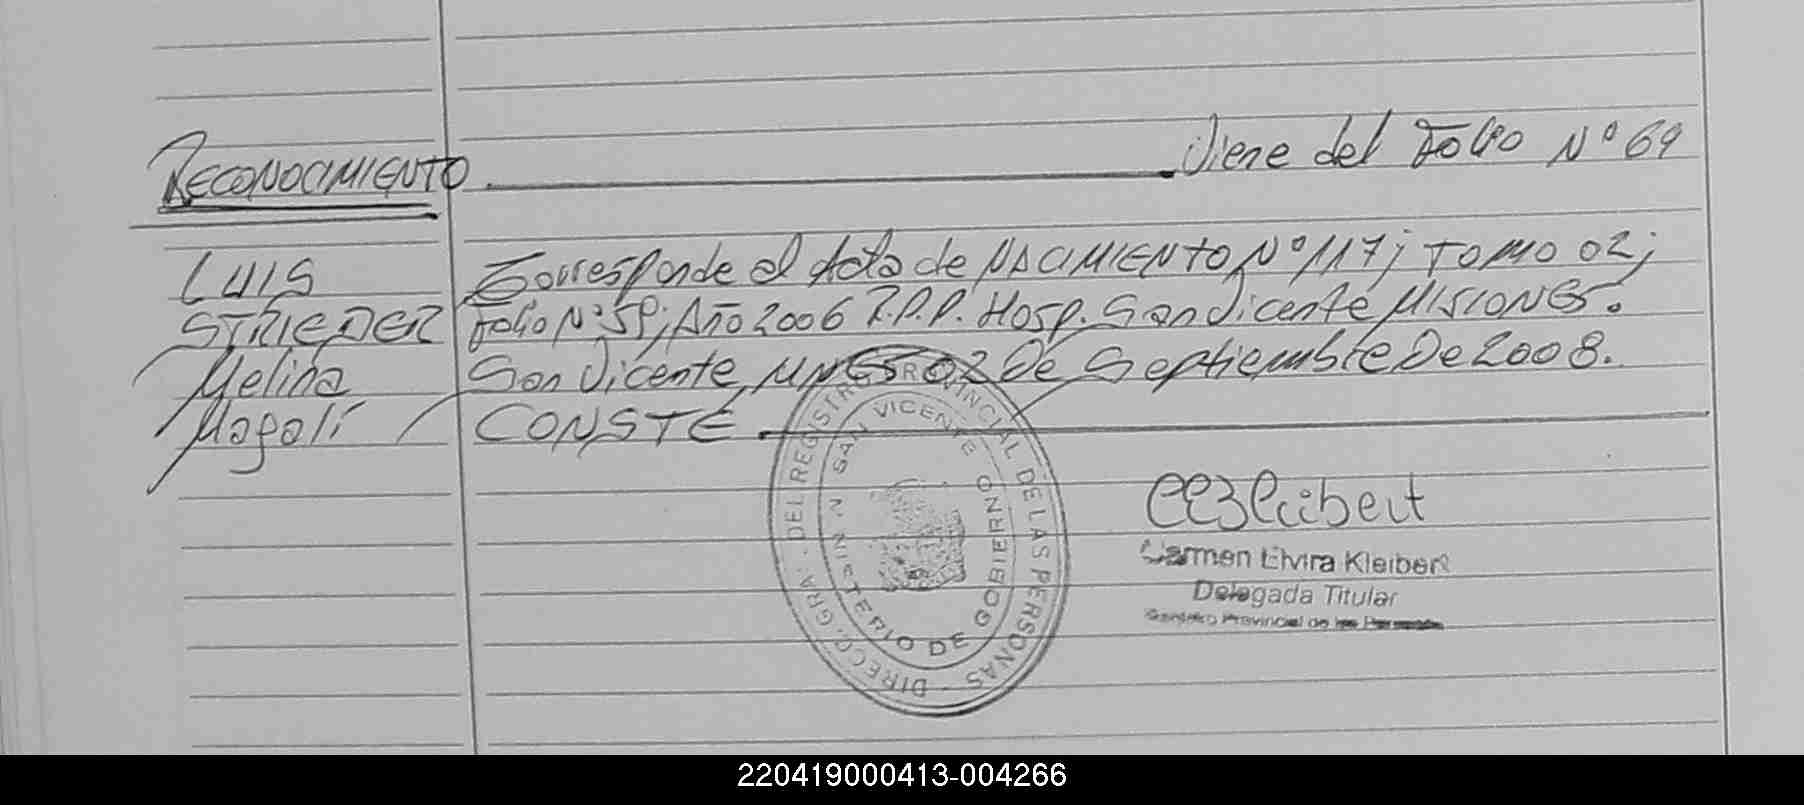 RECONOCIMIENTO. Viene del Folio Nº 69
LUIS Corresponde al Acta de NACIMIENTO Nº 117; TOMO 02;
STRIEDER Folio Nº 59; Año 2006 R.P.P. Hosp. San Vicente MISIONES.
Melina San Vicente, MNES 02 De Septiembre De 2008.
Magalí CONSTE.
DIRECC. GRAL. DEL REGISTRO PROVINCIAL DE LAS PERSONAS
SAN VICENTE
MINISTERIO DE GOBIERNO
Carmen Elvira Kleibert
Delegada Titular
Registro Provincial de las Personas
220419000413-004266